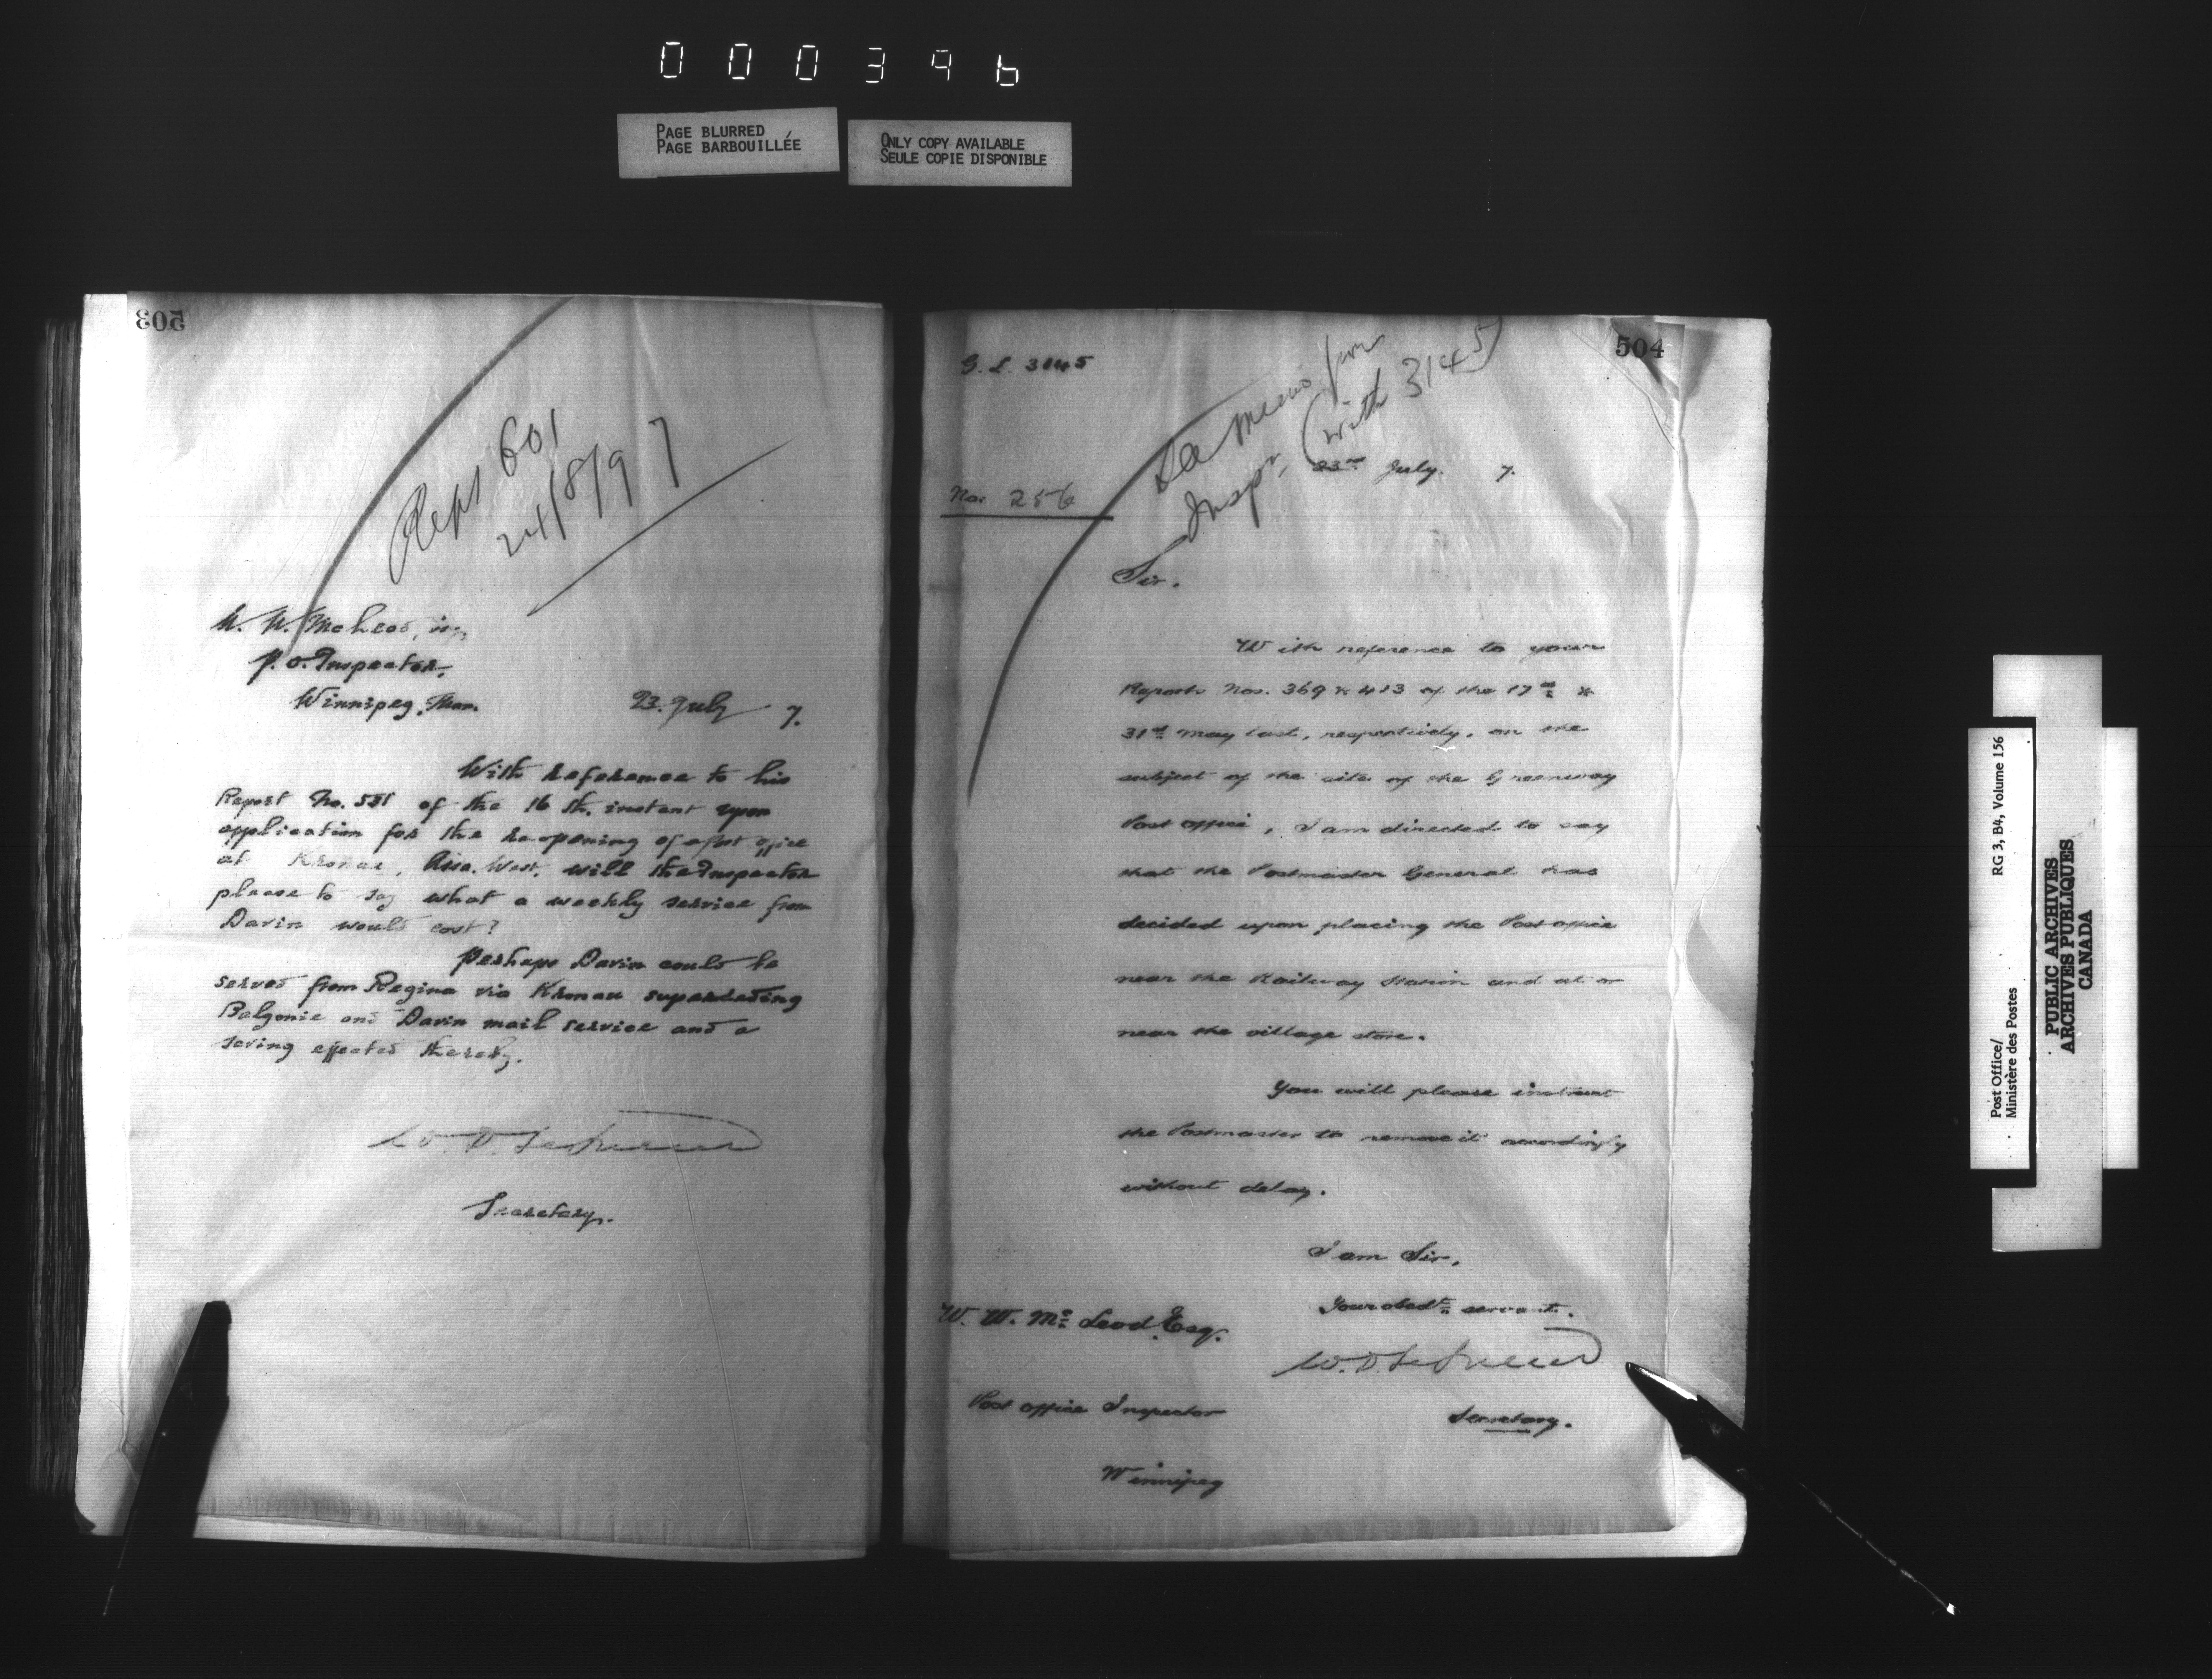 000396
PAGE BLURRED
PAGE BARBOUILLÉE
ONLY COPY AVAILABLE
SEULE COPIE DISPONIBLE
503
Rept 601
24/8/97
W. W. McLeod,
P. O. Inspector,
Winnipeg, Man.
23. July 7.
With reference to his
Report No. 551 of the 16 th. instant upon
application for the reopening of a post office
at Kronau, Assa. West, will the Inspector
please to say what a weekly service from
Davin would cost?
Perhaps Davin could be
served from Regina via Kronau superseding
Balgonie and Davin mail service and a
saving effected thereby.
Secretary.
504
G. L. 3145
Memo from
Inspr, (with 3145)
23rd July. 7.
No. 256
Sir.
With reference to your
Reports Nos. 369 & 413 of the 17th &
31st May last, respectively, on the
subject of the site of the Greenway
Post office, I am directed to say
that the Postmaster General has
decided upon placing the Post office
near the Railway Station and at or
near the village store.
You will please instruct
the Postmaster to remove it accordingly
without delay.
I am Sir,
Your obedt. servant.
W. W. Mc Leod Esq.
Secretary.
Post office Inspector
Winnipeg
Post Office/
Ministère des Postes
RG 3, B4, Volume 156
PUBLIC ARCHIVES
ARCHIVES PUBLIQUES
CANADA